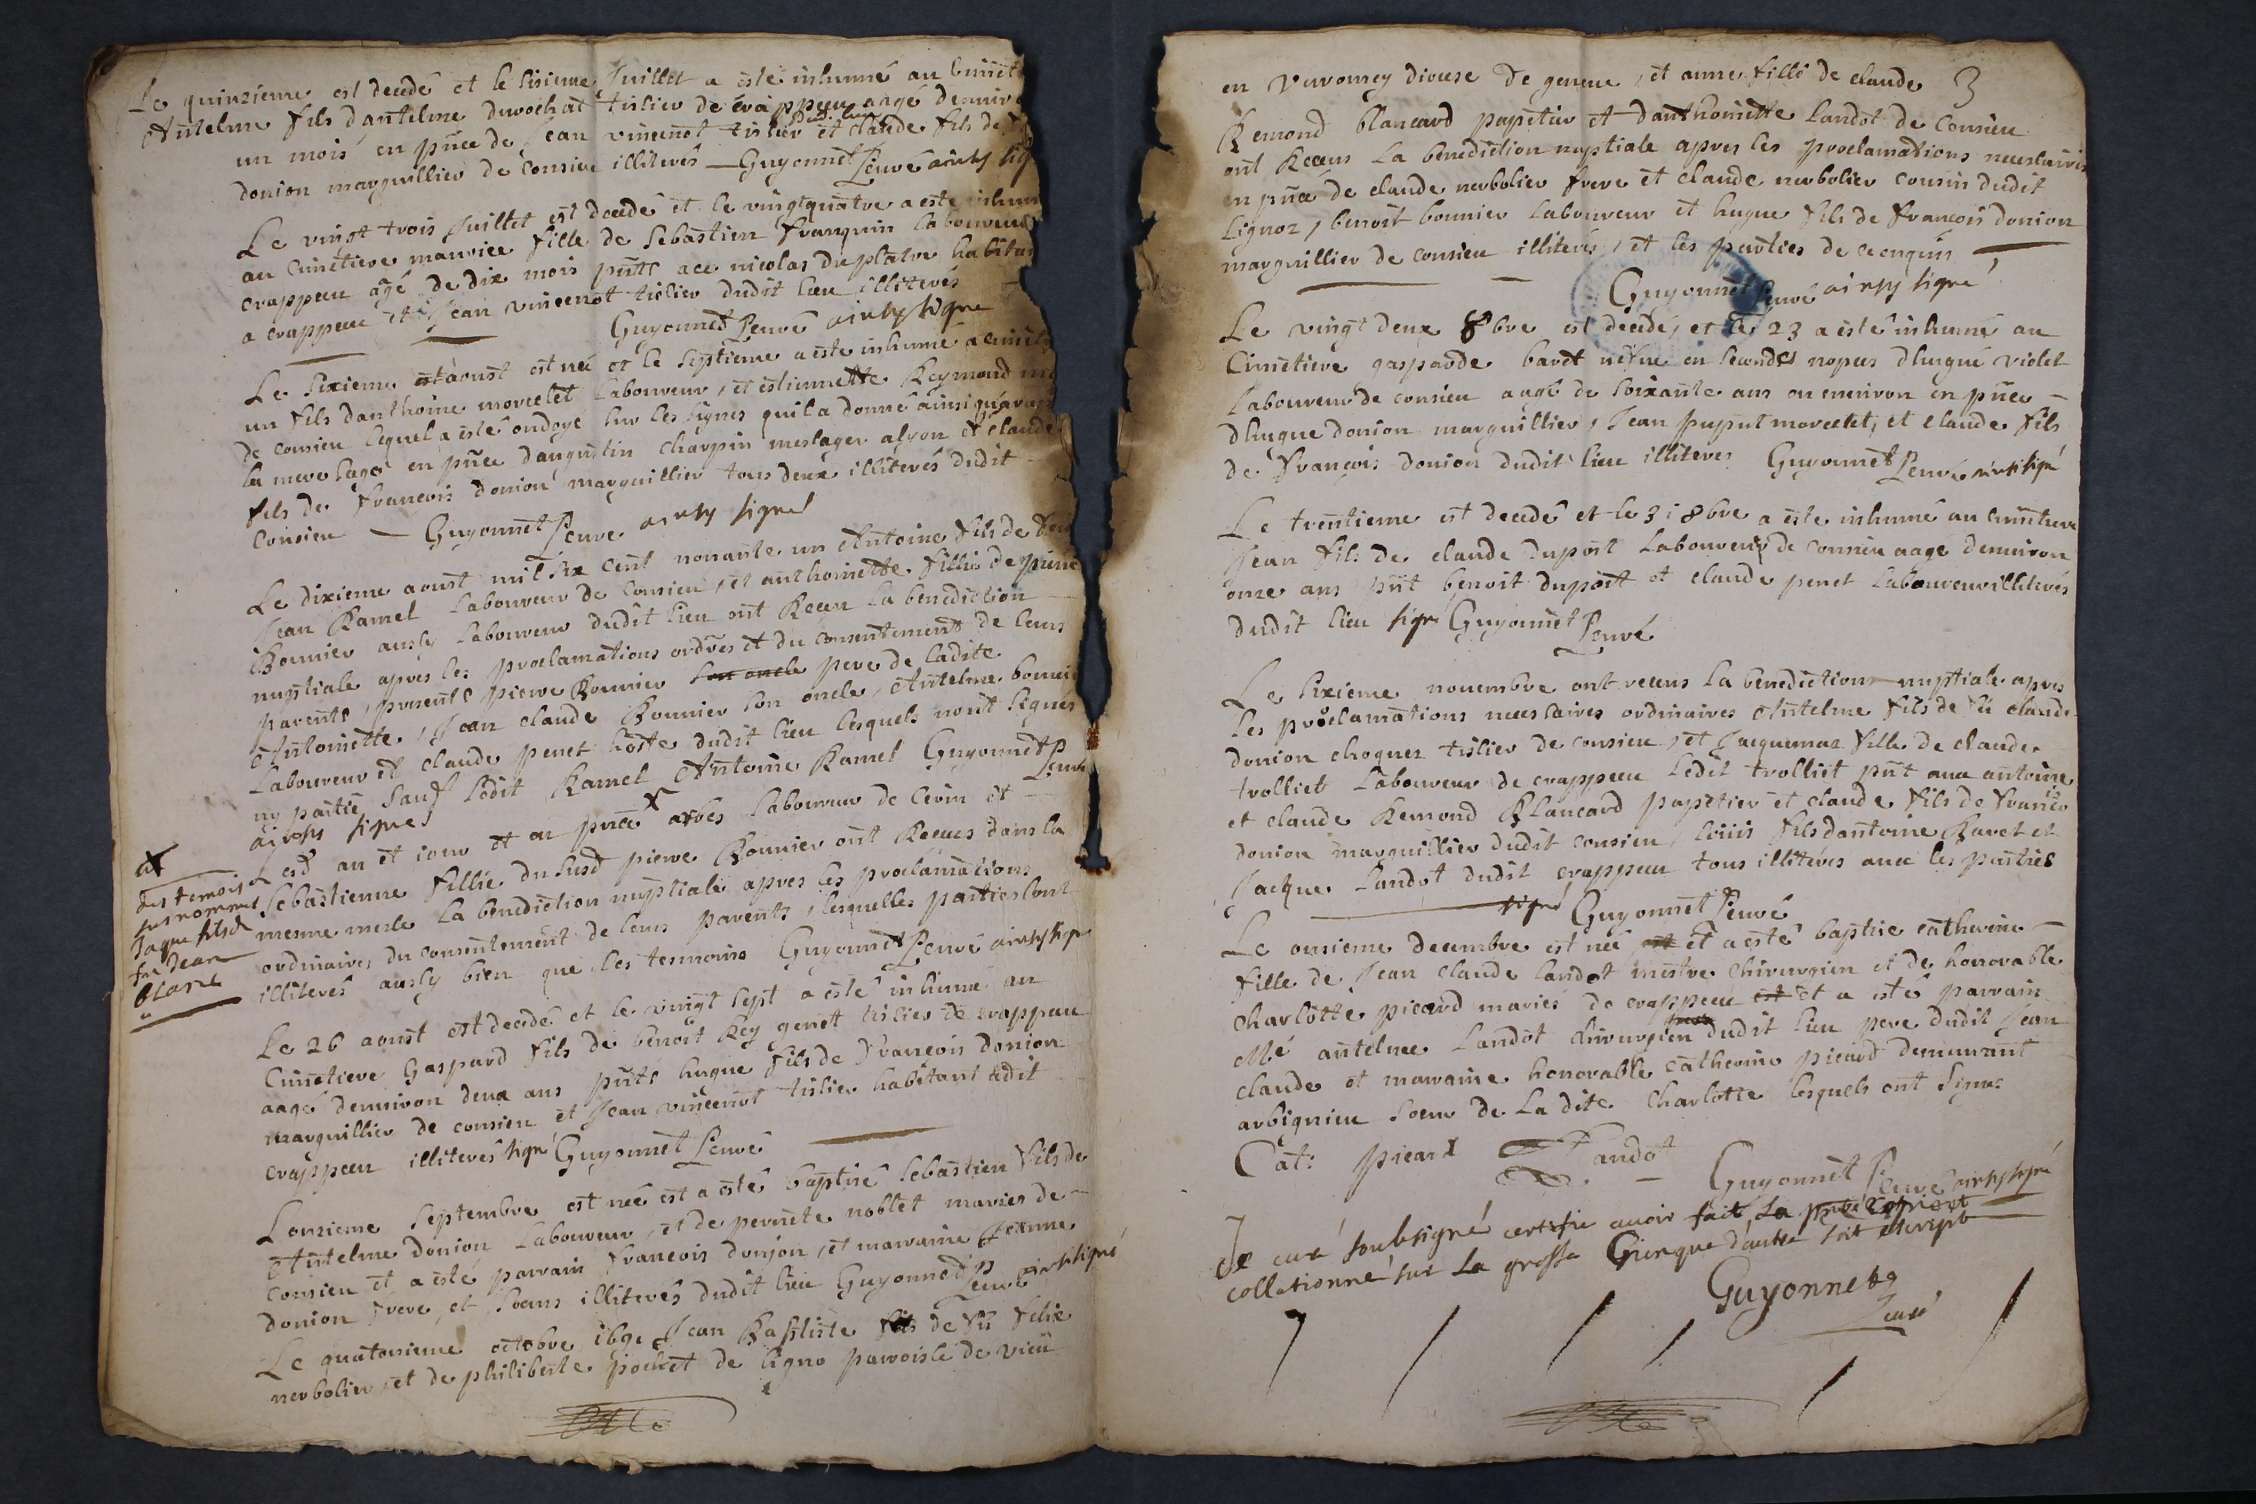 Le quinzieme est decedé et le sisieme Juillet a esté inhumé au cimet
Antelme fils dantelme duvochat tislier de crappeou aagé denvir
un mois en pñce de Jean vincenot tislier et claude fils de
donion marguillier de consieu illiterés Guyonnet Curé ainsy sig
Le vingt trois Juillet est decedé et le vingtquatre a esté inhum
au cimetiere maurice fille de Sebastien franquin laboureur
crappeou agé de dix mois pñts a ce nicolas duplatre habitan
a crappeou et Jean vincenot tislier dudit lieu illiterés
Guyonnet Curé ainsy signé
Le sixieme aoust est né et le septieme a esté inhumé a cimet
un fils danthoine morcelet laboureur, et estiennette Reymond
de consieu lequel a esté ondoyé sur les signes quil a donné ainsi qu
la mere sage en pñce daugustin charpin messager alyon et claude
fils de françois donion marguillier tous deux illiterés dudit
Consieu Guyonnet Curé ainsy signé
Le dixieme aoust mil six cent nonante un Antoine fils de feu
Jean Ramel laboureur de Consieu, et anthoinette fillie de pierre
Bonnier aussy laboureur dudit lieu ont Receu la benediction
nuptiale apres les proclamations ordres et du consentement de leurs
parents, presents pierre Bonnier son oncle pere de ladite
Antoinette, Jean claude Bonnier son oncle, Antelme bonnie
Laboureur et claude penet hoste dudit lieu lesquels nont signés
ny partie sauf ledit Ramel Antoine Ramel Guyonnet Curé
ainsy signé
esd an et iour et en pñce X laboureur de Cerin et
Sebastienne fillie du susd pierre Bonnier ont Receus dans la
mesme messe la benediction nuptiale apres les proclamations
ordinaires du consentement de leurs parents, lesquelles parties sont
illiterés aussy bien que les tesmoins Guyonnet Curé ainsy signé
X
des temoins
susnommes
Jaque fils d
fu Jean
Le 26 aoust est decedé et le vingt sept a esté inhumé au
Cimetiere Gaspard fils de benoit Rey genet tislier de crappeou
aagé denviron deux ans pñts hugue fils de françois donion
marguillier de consieu et Jean vincenot tislier habitant audit
crappeou illiterés signé Guyonnet Curé
Lonzieme Septembre est né est a esté baptisé Sebastien fils de
Antelme donion laboureur, et de pernete noblet mariés de
Consieu et a esté parrain françois donjon, et marraine Jeanne
donion frere, et soeurs illiterés dudit lieu Guyonnet Curé ainsi signé
Le quatorsieme octobre 1691 Jean Baptiste fils de fu felix
nerbolier, et de philiberte pochet de ligno parroisse de vieu
en Vuromey diocese de geneve, et anne fille de claude 3
Remond blancard papetier et danthoinette Landot de Consieu
ont Receus La benediction nuptiale apres les proclamations necessaires
en pñce de claude nerbolier frere et claude nerbolier cousin dudit
Lignoz, benoit bonnier laboureur et hugue fils de francois donion
marguillier de consieu illiterés, et les parties de ce enquis
Guyonnet Curé ainsy signé
Le vingt deux 8bre est decedé, et le 23 a esté inhumé au
Cimetiere gasparde baret en secondes nopces dhugue violet
Laboureur de consieu aagé de soixante ans ou environ en pñce
dhugue donion marguillier, Jean puput morcelet, et claude fils
de françois donion dudit lieu illiteres Guyonnet Curé ainsi signé
Le trentieme est decedé et le 31 8bre a esté inhumé au cimetiere
Jean fils de claude dupoit laboureur de consieu aagé denviron
onze ans pñt benoit dupoit et claude penet laboureur illiterés
dudit lieu signé Guyonnet Curé
Le sixieme novembre ont receus la benediction nuptiale apres
les proclamations necessaires ordinaires Antelme fils de fu claude
donion choquer tislier de consieu, et Jacquemaz fille de claude
trolliet laboureur de crappeou ledit trolliet pñt avec antoine
et claude Remond Blancard papetier et claude fils de françois
donion marguillier dudit consieu, louis fils dantoine Baret et
Jacque Landot dudit crappeou tous illiterés avec les parties
signé Guyonnet Curé
Le onsieme decembre est née et a esté baptisée catherine
fille de Jean claude landot mestre chirurgien et de honorable
charlotte picard mariés de crappeou est et a esté parrain
Me antelme Landot chirurgien dudit lieu pere dudit Jean
claude et marraine honorable catherine picard demeurant
arbignieu soeur de la dite charlotte lesquels ont signé
Cat: picard Landot Guyonnet Curé ainsy signé
Je curé soubsigné certifie avoir fait la collationné sur la grosse
Guyonnet
Curé